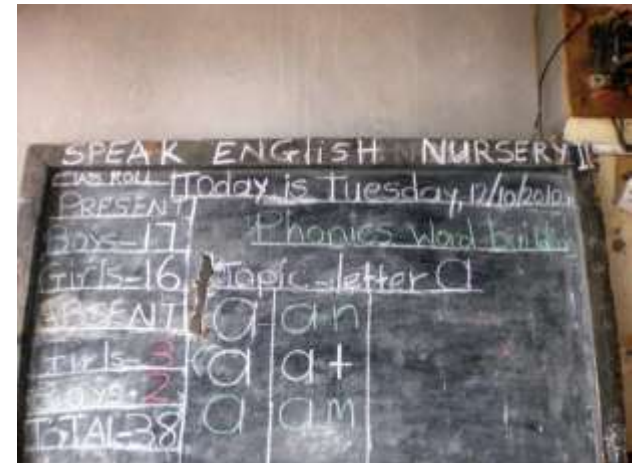 SPEAK ENGLISH NURSERY II
CLASS ROLL
PRESENT
Boys-17
Girls-16
ABSENT
Girls-3
Boys-2
TOTAL-38
Today is Tuesday, 12/10/2010
Phonics Word build
Topic-letter a
a an
a at
a am